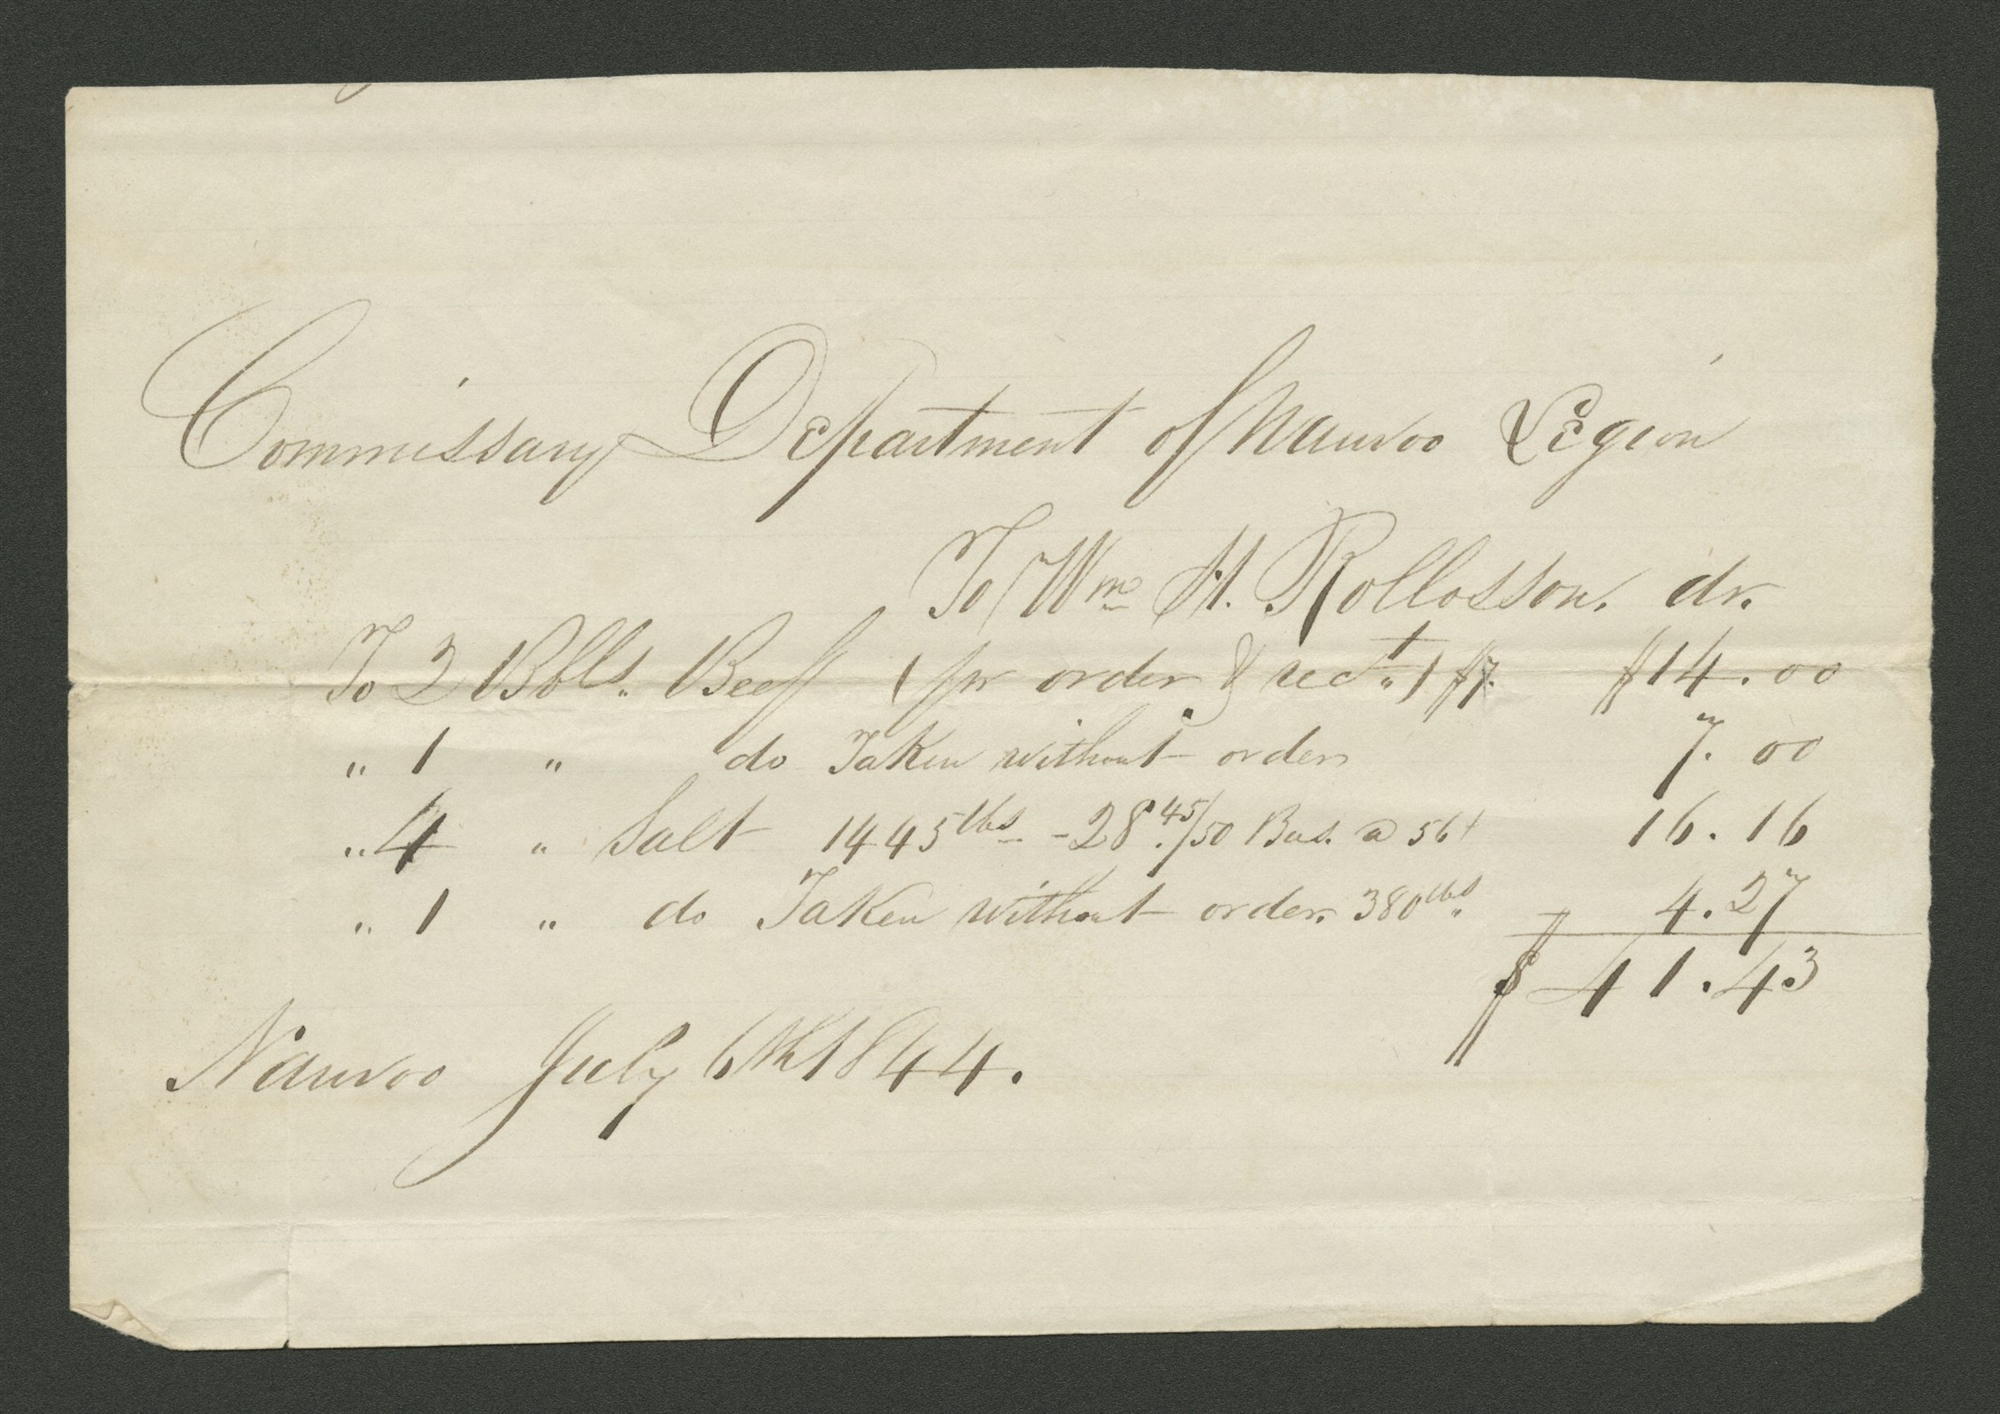 Commissary Department of Nauvoo Legion
To Wm H. Rollosson. dr.
To 2 Bbls. Beef (pr order & rect.) $7. $14.00
" 1 " do Taken without order 7.00
" 4 " Salt 1445 lbs - 28.45/50 Bus. @ 56 16.16
" 1 " do Taken without order. 380 lbs. 4.27
$41.43
Nauvoo July 6th 1844.